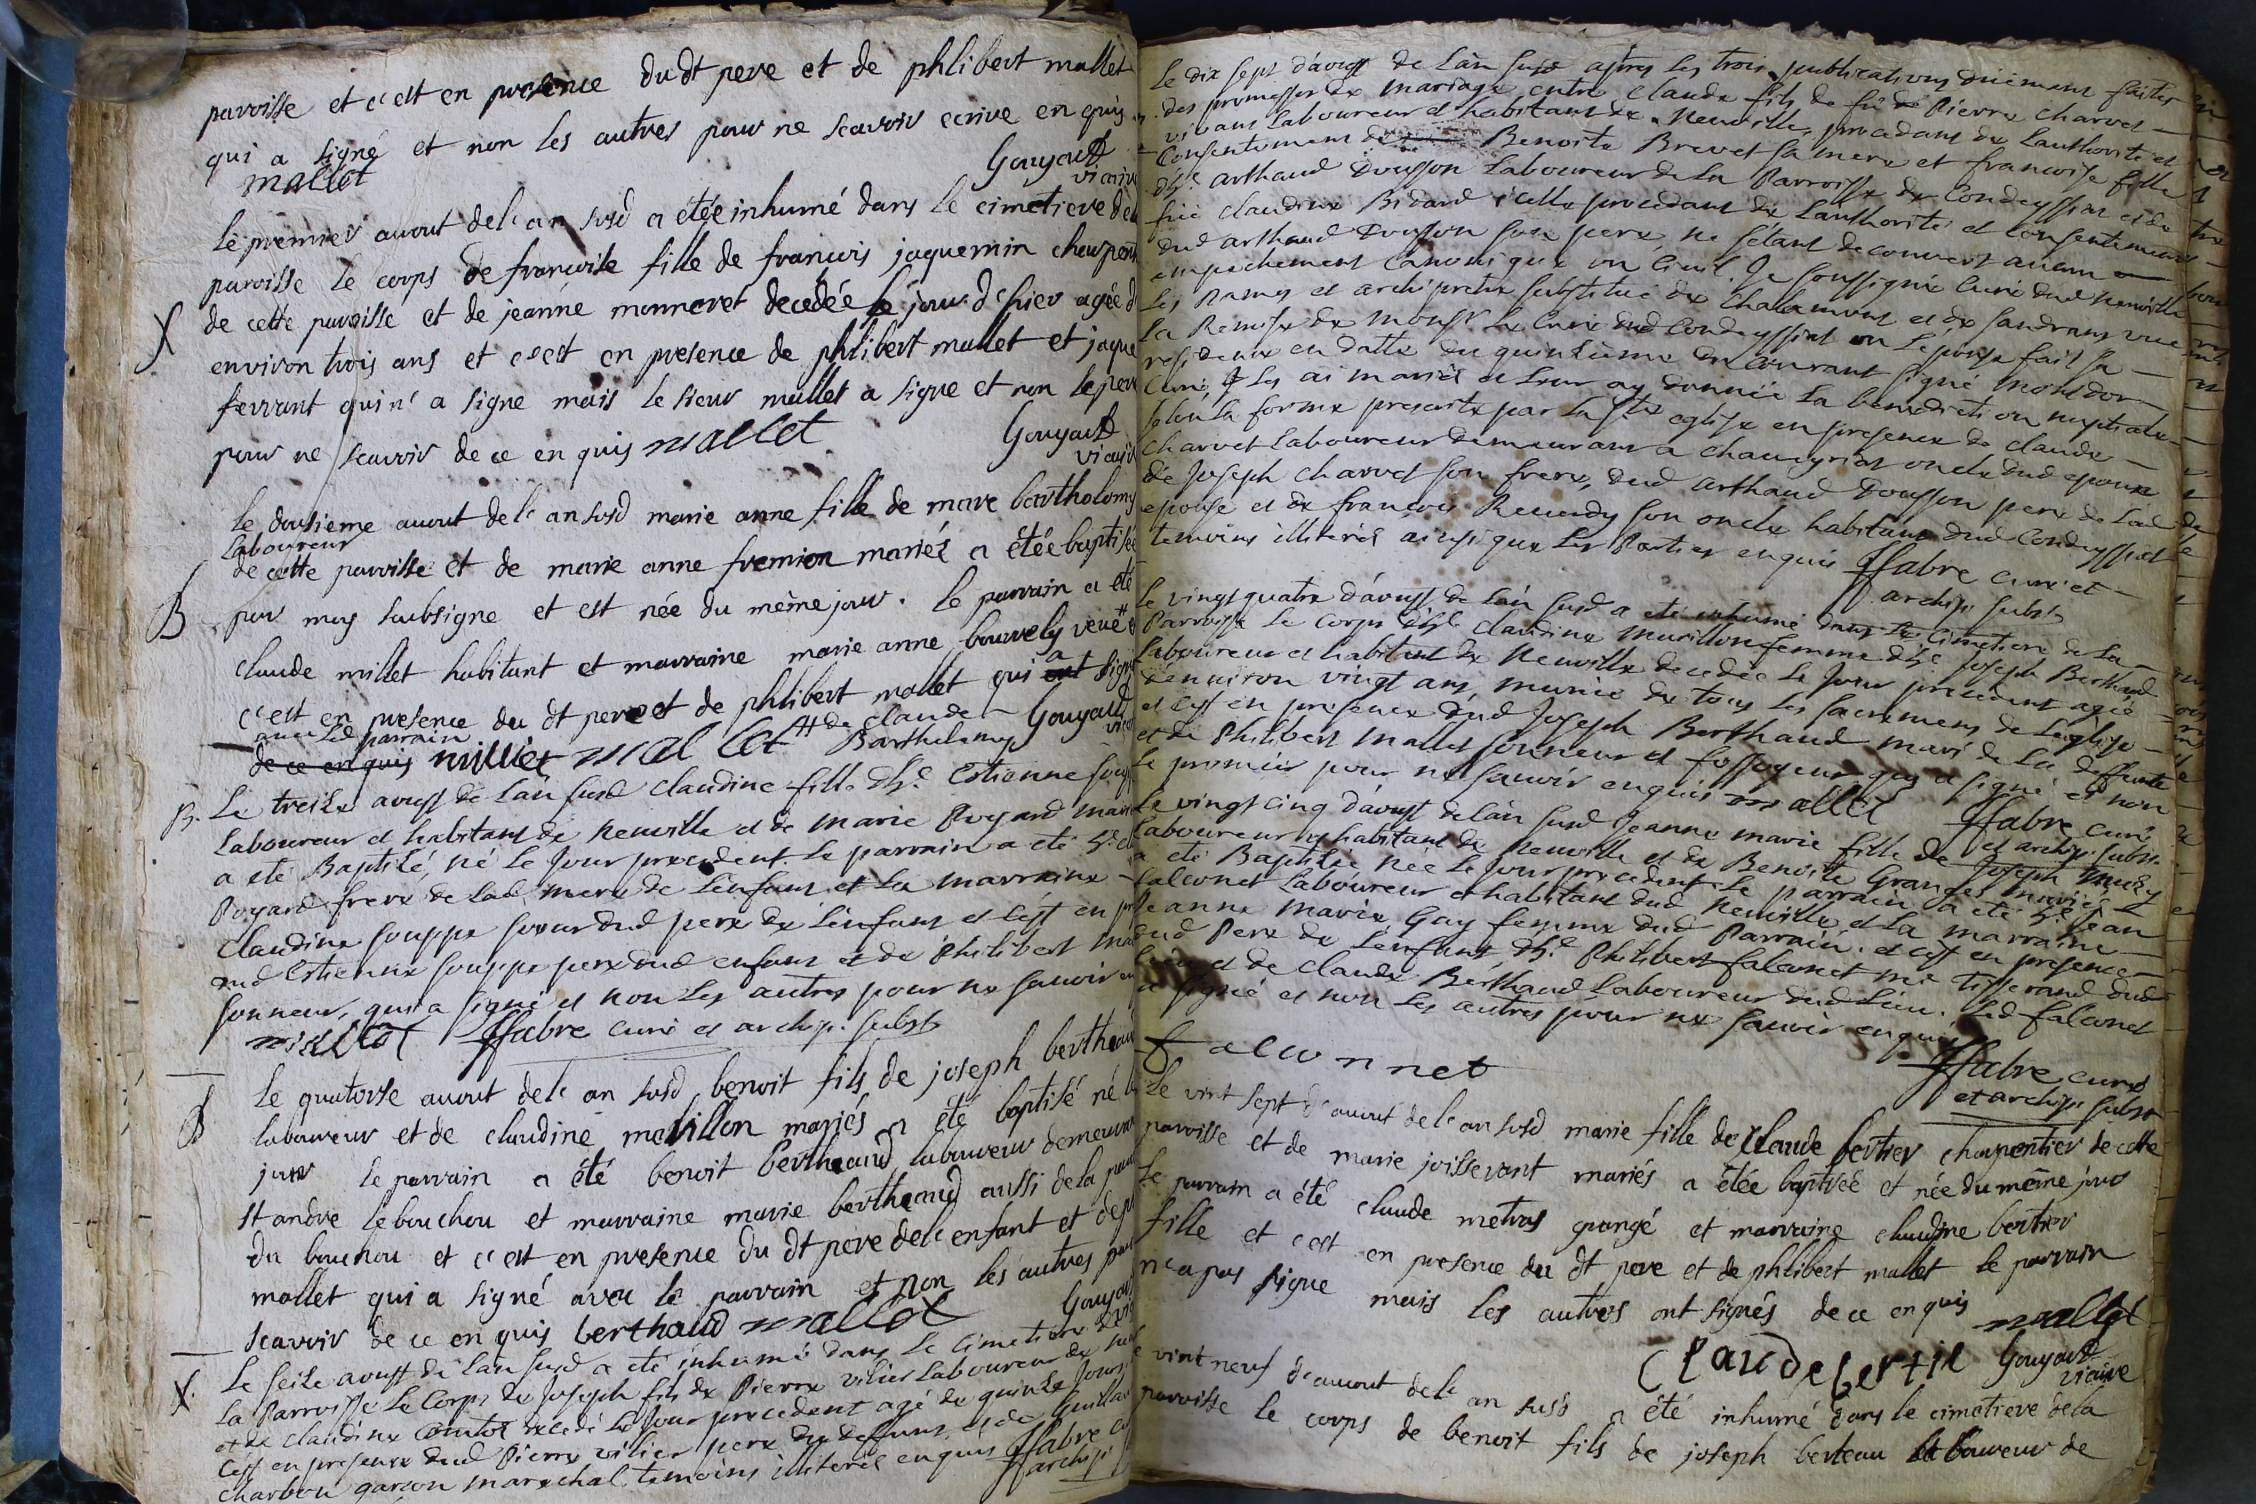 parroisse et c'est en presence du dt pere et de phlibert mallet
qui a signé et non les autres pour ne scavoir ecrire en quis
mallet Gouyaud
vicaire
le premier auout del'an susd a étée inhumé dans le cimetiere dela
paroisse le corps de francoise fille de francois jaquemin charpent
de cette paroisse et de jeanne monneret decedée le jour d'hier agée d
X environ trois ans et c'est en presence de phlibert mallet et jaque
ferrant qui n'a signe mais le sieur mallet a signe et non le pere
pour ne scavoir de ce en quis mallet Gouyaud
vicaire
le dousieme auout del'an susd marie anne fille de marc bartholomy
laboureur
de cette parroisse et de marie anne fremion mariés a étée baptisée
B par moy soubsigne et est née du même jour . le parrain a été
claude millet habitant et marraine marie anne bouvely veuë #
c'est en presence du dt pere et de phlibert mallet qui a signé
auec led parrain
de ce en quis millier mallet # de claude Barthelemy Gouyaud
B. Le treize aoust de l'an susd Claudine fille d'h.e Estienne souppe
Laboureur et habitant de Neuville et de Marie Poyard mariés
a eté Baptisé, né le Jour precedent. le parrain a eté
Poyard frere de lad. mere de l'enfant et la marraine
Claudine souppe soeur dud pere de l'enfant et c'est en
dud Estienne souppe pere dud enfant et de Philibert
sonneur, qui a signé et non les autres pour ne sauoir en
mallet ffabre curé et archip. subst
le quatorse auout del'an susd benoit fils de joseph bertheaud
B laboureur et de claudine mabillon mariés a été baptisé né
jour le parrain a été benoit bertheaud laboureur demeurant
st andre le bouchou et marraine marie bertheaud aussi dela
du bouchou et c'est en presence du dt pere del'enfant et de
mallet qui a signé avec le parrain et non les autres pour
scavoir de ce en quis berthaud mallet Gouyaud
X. Le seize aoust de l'an susd a eté inhumé dans le cimetiere de
La Parroisse le Corps de Joseph fils de Pierre vilier Laboureur de
et de claudine decedé le Jour precedent agé de quinze Jours
C'est en presence dud Pierre vilier pere du deffunt, et de Guillau
charbon garcon marechal temoins illiterés enquis ffabre
archip.
Le dix sept d'aoust de l'an susd après les trois publications duëment faites
des promesses de mariage entre Claude fils de fû de Pierre Charvet
vivant Laboureur et habitant de Neuville, procedant de l'authorité et
Consentement de Benoite Brevet sa mere et francoise fille
d'h.e arthaud Dousson Laboureur de la Parroisse de Condeyssiat et de
fuë Claudine Bidard icelle procedant de l'authorité et consentement
dud arthaud Dousson son pere, ne s'étant decouvert aucun
empechement Canonique ou Civil. Je soussigné Curé dud Neuville
Les Dames et archipretre substitué de Chalamont et de sandrans vue
la Remise de Monsr le Curé dud Condeyssiat ou l'epouse fait sa
residence en datte du quinzieme du courant signé
Curé, Je les ai mariés et leur ay donnée la benediction nuptiale
selon la forme prescrite par la ste eglise en presence de claude
Charvet Laboureur demeurant a chaveyriat oncle dud epoux
de Joseph charvet son frere, dud arthaud Dousson pere de lad
epouse et de francois Reuerdy son oncle habitans dud Condeyssiat
temoins illiterés ainsi que les Parties enquis ffabre curé et
archip. subst
Le vingt quatre d'aoust de l'an susd a eté inhumé dans le Cimetiere de la
Parroisse le corps d'h.e Claudine Murillon femme d'h.e Joseph Berthaud
Laboureur et habitant de Neuville decedée le Jour precedent agée
d'enuiron vingt ans, munie de tous les sacremens de l'église
et c'est en presence dud Joseph Berthaud mari de la deffunte
et de Philibert Mallet sonneur et fossoyeur qui a signé et non
le premier pour ne sauoir enquis mallet ffabre curé
et archip. subst.
Le vingt cinq d'aoust de l'an susd Jeanne marie fille de Joseph
Laboureur et habitant de Neuville et de Benoite Granger mariés
a eté Baptisée née le Jour precedent. le parrain a eté h.e Jean
falconet Laboureur et habitant dud Neuville et la marraine
Jeanne Marie Gay femme dud Parrain. et c'est en presence
dud Pere de l'enfant, d'h.e Philibert falconet me tisserand dud
lieu et de claude Berthaud Laboureur dud Lieu. Led falconet
a signé et non les autres pour ne sauoir enquis
falconnet ffabre curé
et archip. subst
Le vint sept d'auout del'an susd marie fille de claude bertier charpentier de cette
paroisse et de marie joisserant mariés a étée baptisée et née du même jour
le parrain a été claude metras grangé et marraine claudine bertier
fille et c'est en presence du dt pere et de phlibert mallet le parrain
n'a pas signe mais les autres ont signés de ce en quis mallet
Claude bertie Gouyaud
vicaire
vint neuf d'auout del'an susd a été inhumé dans le cimetiere dela
paroisse le corps de benoit fils de joseph berteau laboureur de